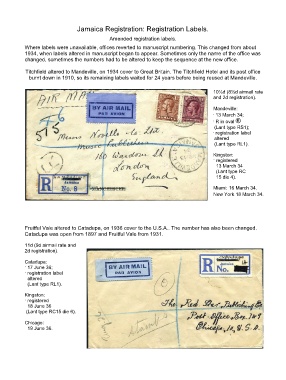 Jamaica Registration: Registration Labels.
Amended registration labels.
Where labels were unavailable, offices reverted to manuscript numbering. This changed from about
1934, when labels altered in manuscript began to appear. Sometimes only the name of the office was
changed, sometimes the numbers had to be altered to keep the sequence at the new office.
Titchfield altered to Mandeville, on 1934 cover to Great Britain. The Titchfield Hotel and its post office
burnt down in 1910, so its remaining labels waited for 24 years before being reused at Mandeville.
AIR MAIL
BY AIR MAIL
PAR AVION
Messrs Novello & Co. Ltd.
Music Publishers
160 Wardour St
London
England
R
No. 8
10½d (8½d airmail rate
and 2d registration).
Mandeville:
13 March 34;
R in oval
(Lant type RS1);
registration label
altered
(Lant type RL1).
Kingston:
registered
13 March 34
(Lant type RC
15 die 4).
Miami: 16 March 34.
New York 18 March 34.
Fruitful Vale altered to Catadupa, on 1936 cover to the U.S.A. The number has also been changed.
Catadupa was open from 1897 and Fruitful Vale from 1931.
11d (9d airmail rate
and 2d registration).
Catadupa:
17 June 36;
registration label
altered
(Lant type RL1).
Kingston:
registered
18 June 36
(Lant type RC15 die 4).
Chicago:
19 June 36.
BY AIR MAIL
PAR AVION
R
No.
The Red Star Publishing Co
Post Office Box 149
Chicago, U.S.A.